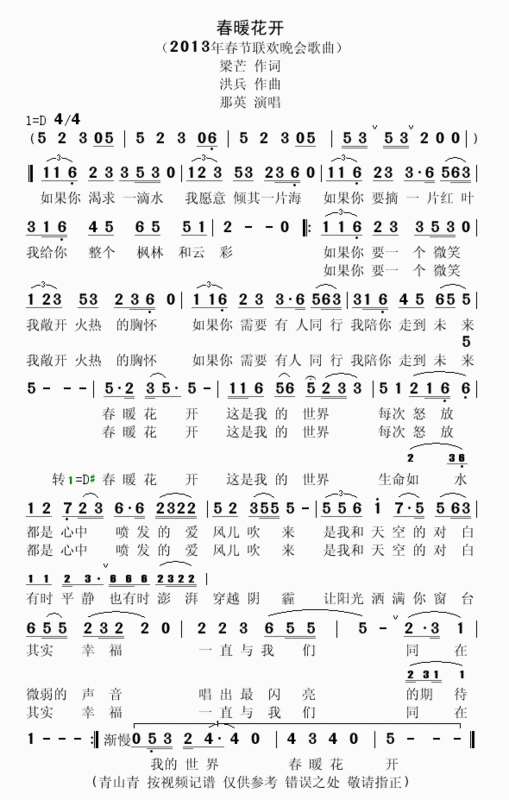 春暖花开
（2013年春节联欢晚会歌曲）
梁芒 作词
洪兵 作曲
那英 演唱
1=D 4/4
(5 2 3 05 | 5 2 3 06 | 53 53 200 |)
116 23 3530 | 123 53 2360 | 116 23 3·6 563 |
如果你 渴求 一滴水 我愿意 倾其一片海 如果你 要摘 一片红叶
316 45 65 51 | 2 - - 0 |: 116 23 3530 |
我给你 整个 枫林 和云 彩 如果你 要一 个 微笑
如果你 要一 个 微笑
123 53 2360 | 116 23 3·6 563 | 316 45 655 |
我敞开 火热 的胸怀 如果你 需要 有 人同 行 我陪你 走到 未 来
5
我敞开 火热 的胸怀 如果你 需要 有人 同 行 我陪你 走到 未 来
5 - - - | 5·2 35· 5 - | 116 56 5233 | 512166 |
春 暖 花 开 这是我 的 世界 每次 怒 放
春 暖 花 开 这是我 的 世界 每次 怒 放
2 36
转1=D# 春 暖 花 开 这是我 的 世界 生命如 水
12 723 6·6 2322 | 52 355 5 - | 556 1 7·5 563 |
都是 心中 喷发 的 爱 风儿 吹 来 是我和 天 空的 对 白
都是 心中 喷发 的 爱 风儿 吹 来 是我和 天 空的 对 白
11 23· 666 2322 |
有时 平 静 也有时 澎 湃 穿越 阴 霾 让阳光 洒 满 你 窗 台
655 232 20 | 2 2 3 655 | 5 - 2·3 1 |
其实 幸 福 一 直 与 我 们 同 在
231 1
微弱的 声 音 唱 出 最 闪 亮 的期 待
其实 幸 福 一 直 与 我 们 同 在
1 - - - :| 渐慢 053 24·40 | 4 3 4 0 | 5 - - - |
我的 世 界 春 暖 花 开
(青山青 按视频记谱 仅供参考 错误之处 敬请指正)